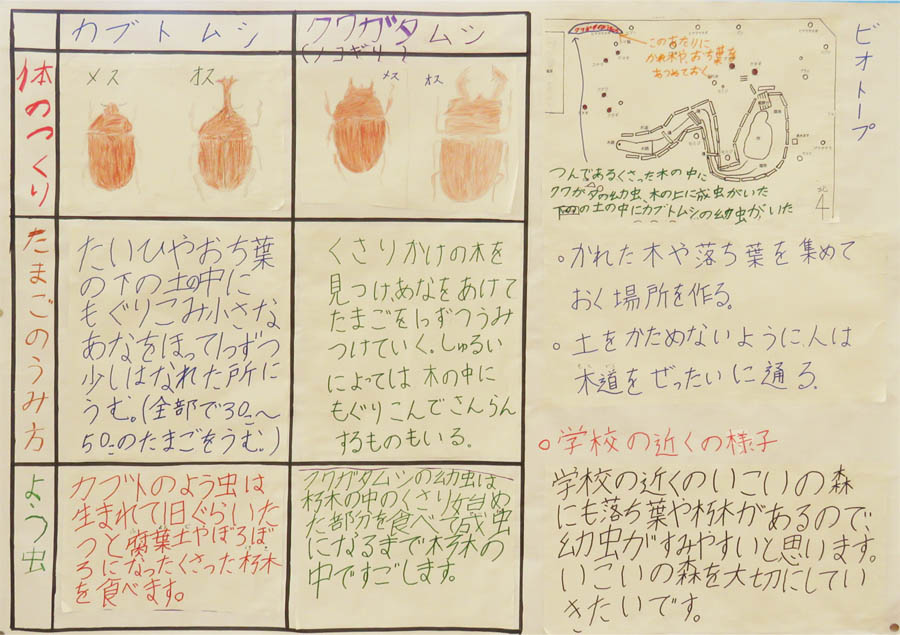 カブトムシ
クワガタムシ
(ノコギリ)
体のつくり
メス
オス
メス
オス
たまごのうみ方
たいひやおち葉
の下の土の中に
もぐりこみ小さな
あなをほって1つずつ
少しはなれた所に
うむ。(全部で30こ〜
50このたまごをうむ。)
くさりかけの木を
見つけ、あなをあけて
たまごを1っずつうみ
つけていく。しゅるい
によっては木の中に
もぐりこんでさんらん
するものもいる。
よう虫
カブトのよう虫は
生まれて1日ぐらいた
つと腐葉土やぼろぼ
ろになったくさった朽木
を食べます。
クワガタムシの幼虫は
朽木の中のくさり始め
た部分を食べて成虫
になるまで朽木の
中ですごします。
ビオトープ
このあたりに
かれ木や、おち葉を
あつめておく
つんであるくさった木の中に
クワガタの幼虫、木の上に成虫がいた
下の土の中にカブトムシの幼虫がいた
北
4
。かれた木や落ち葉を集めて
おく場所を作る。
。土をかためないように、人は
木道をぜったいに通る。
。学校の近くの様子
学校の近くのいこいの森
にも落ち葉や朽木があるので、
幼虫がすみやすいと思います。
いこいの森を大切にしてい
きたいです。